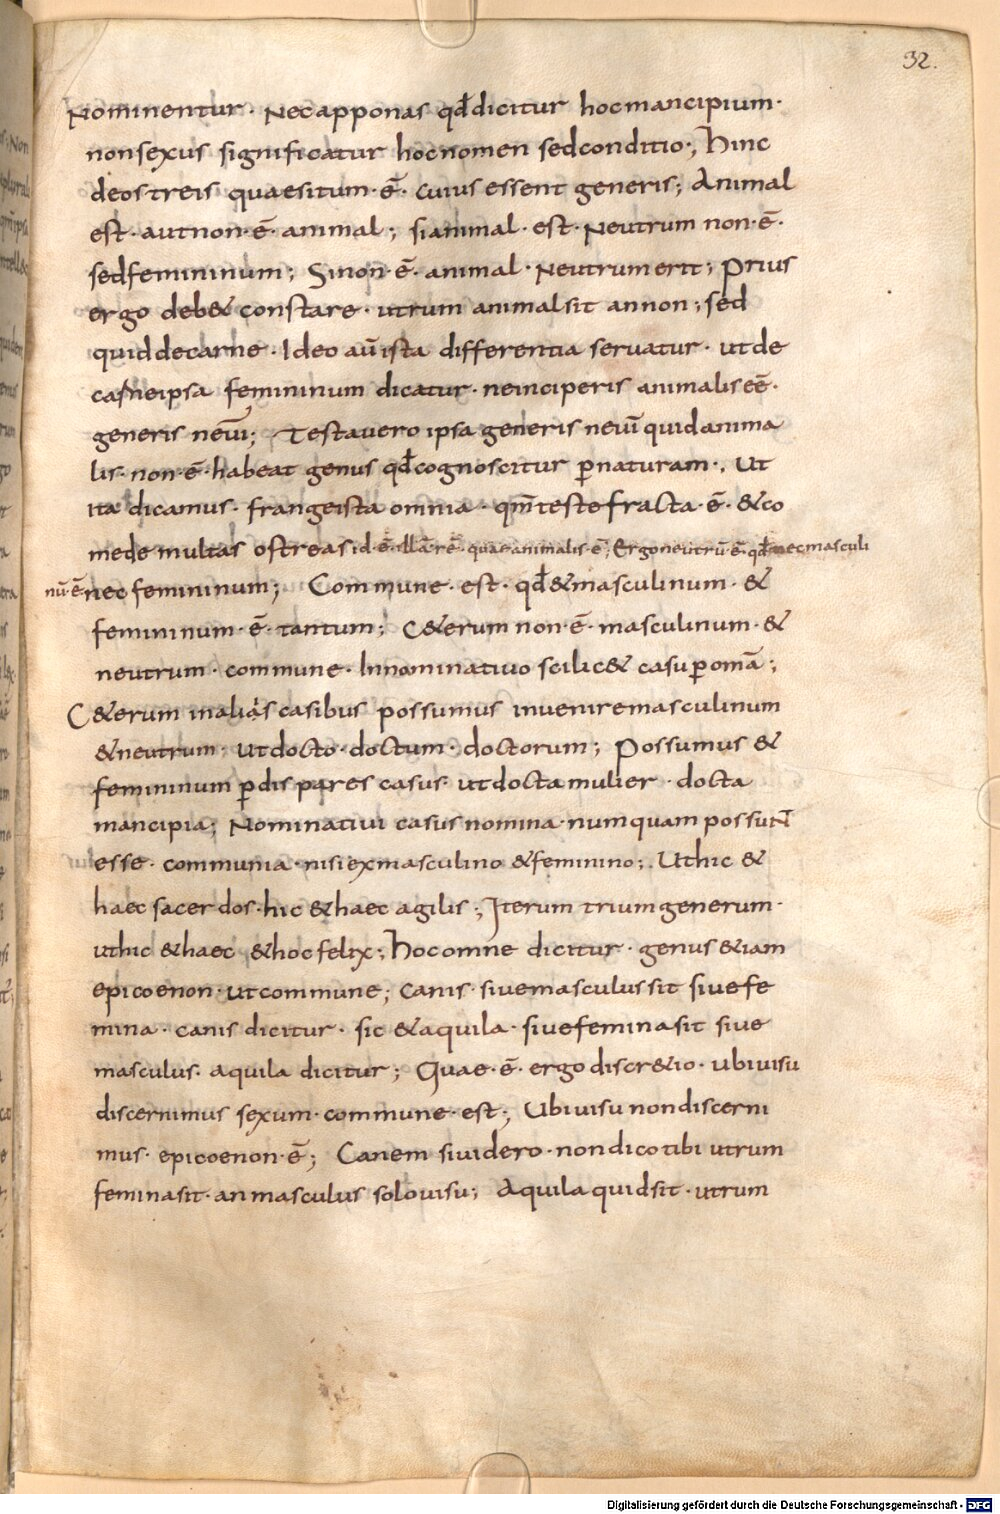 32.
Nominentur · Nec apponas qđ dicitur hoc mancipium ·
non sexus significatur hoc nomen sed conditio ·; Hinc
de ostreis quaesitum · ē · cuius essent generis ; Animal
est · aut non · ē · animal ; si animal · est · Neutrum non · ē ·
sed femininum ; Si non · ē · animal · Neutrum erit ; Prius
ergo deb& constare · utrum animal sit an non ; sed
quid de carne · Ideo aū ista differentia servatur · ut de
carne ipsa femininum dicatur · ne inciperis animalis eē ·
generis neūi ; Testa vero ipsa generis neūi quid anima
lis · non · ē · habeat genus qđ cognoscitur p̄ naturam ·, Ut
ita dicamus · frange ista omnia · qm̄ teste fracta · ē · & co
mede multas ostreas id · ē · illā · rē · quae animalis · ē ; Ergo neutrū · ē · qđ nec masculi
nū · ē nec femininum ; Commune · est · qđ & masculinum · &
femininum · ē · tantum ; C&erum non · ē · masculinum · &
neutrum · commune · In nominativo scilic& casu p̄ omā ;
C&erum in aliis casibus possumus invenire masculinum
& neutrum · ut docto · doctum · doctorum ; Possumus &
femininum p̄ dispares casus · ut docta mulier · docta
mancipia ; Nominativi casus nomina · numquam possunt
esse · communia · nisi ex masculino & feminino ; Ut hic &
haec sacerdos · hic & haec agilis ·, Iterum trium generum ·
ut hic & haec & hoc felix ; Hoc omne dicitur · genus & iam
epicoenon · ut commune ; canis · sive masculus sit sive fe
mina · canis dicitur · sic & aquila · sive femina sit sive
masculus · aquila dicitur ; Quae · ē · ergo discr&io · ubi visu
discernimus sexum · commune · est ; Ubi visu non discerni
mus · epicoenon · ē ; Canem si videro · non dico tibi utrum
femina sit · an masculus solo visu ; Aquila quid sit · utrum
Digitalisierung gefördert durch die Deutsche Forschungsgemeinschaft - DFG